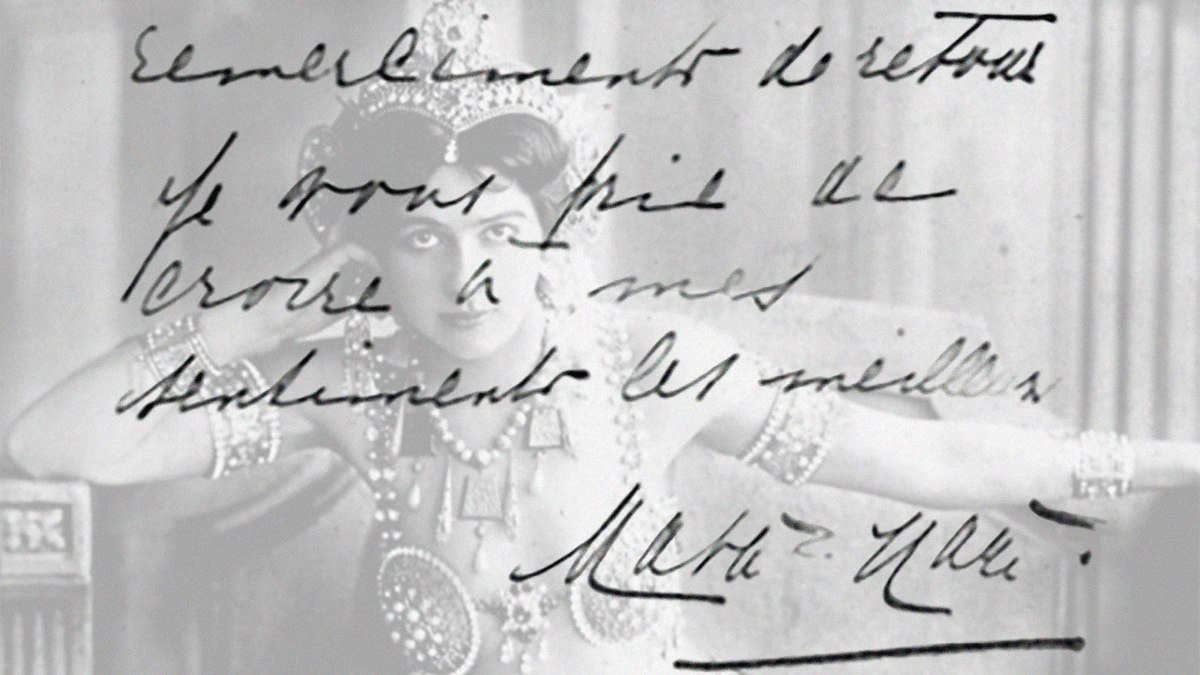 remerciements de retour
Je vous prie de
croire à mes
sentiments les meilleurs
Mata Hari.